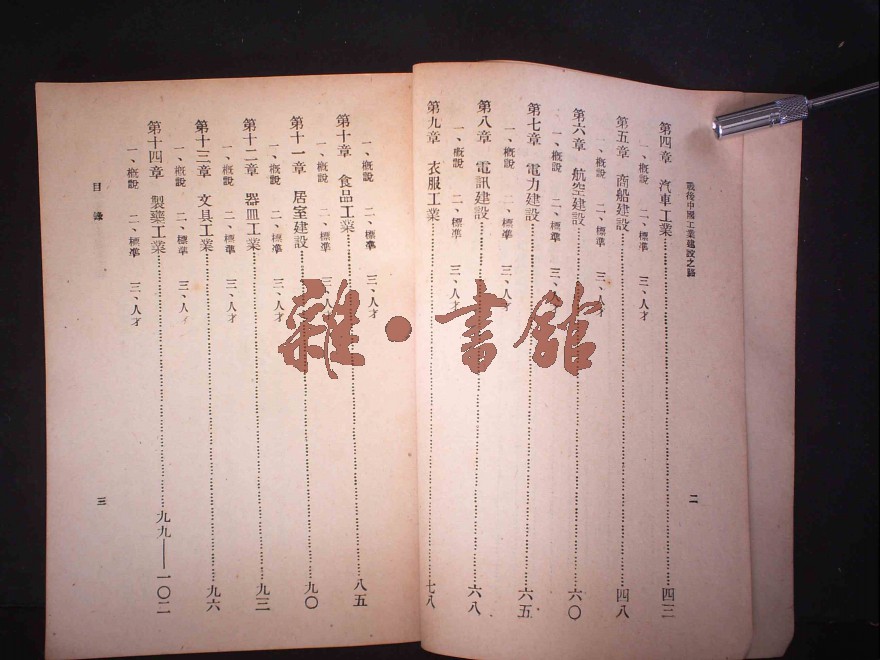 戰後中國工業建設之路
二
第四章 汽車工業 四三
一、概說 二、標準 三、人才
第五章 商船建設 四八
一、概說 二、標準 三、人才
第六章 航空建設 六〇
一、概說 二、標準 三、人才
第七章 電力建設 六五
一、概說 二、標準 三、人才
第八章 電訊建設 六八
一、概說 二、標準 三、人才
第九章 衣服工業 七八
一、概說 二、標準 三、人才
第十章 食品工業 八五
一、概說 二、標準 三、人才
第十一章 居室建設 九〇
一、概說 二、標準 三、人才
第十二章 器皿工業 九三
一、概說 二、標準 三、人才
第十三章 文具工業 九六
一、概說 二、標準 三、人才
第十四章 製藥工業 九九——一〇二
一、概說 二、標準 三、人才
目錄
三
雜·書館